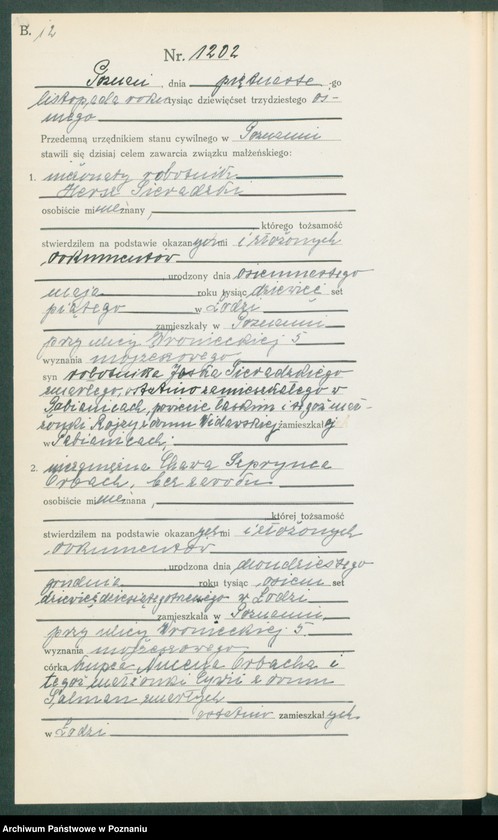 B. 12
Nr. 1202
Poznań, dnia piętnastego
listopada roku tysiąc dziewięćset trzydziestego ós-
mego
Przedemną urzędnikiem stanu cywilnego w Poznaniu
stawili się dzisiaj celem zawarcia związku małżeńskiego:
1. nieżonaty robotnik
Hersz Sieradzki
osobiście mi nieznany,
którego tożsamość
stwierdziłem na podstawie okazanych mi i złożonych
dokumentów
urodzony dnia osiemnastego
maja roku tysiąc dziewięć set
piątego w Łodzi
zamieszkały w Poznaniu
przy ulicy Wronieckiej 5
wyznania mojżeszowego
syn robotnika Joska Sieradzkiego
zmarłego, ostatnio zamieszkałego w
Pabianicach, powiat Łaskim i tegoż mał-
żonki Rajzy z domu Widawskiej zamieszkałej
w Pabianicach;
2. niezamężna Chawa Szprynca
Orbach, bez zawodu
osobiście mi nieznana,
której tożsamość
stwierdziłem na podstawie okazanych mi i złożonych
dokumentów
urodzona dnia dwudziestego
grudnia roku tysiąc osiem set
dziewięćdziesiątego w Łodzi
zamieszkała w Poznaniu
przy ulicy Wronieckiej 5
wyznania mojżeszowego
córka kupca Orbacha i
tegoż małżonki Cywii z domu
Salman zmarłych
ostatnio zamieszkałych
w Łodzi
Archiwum Państwowe w Poznaniu